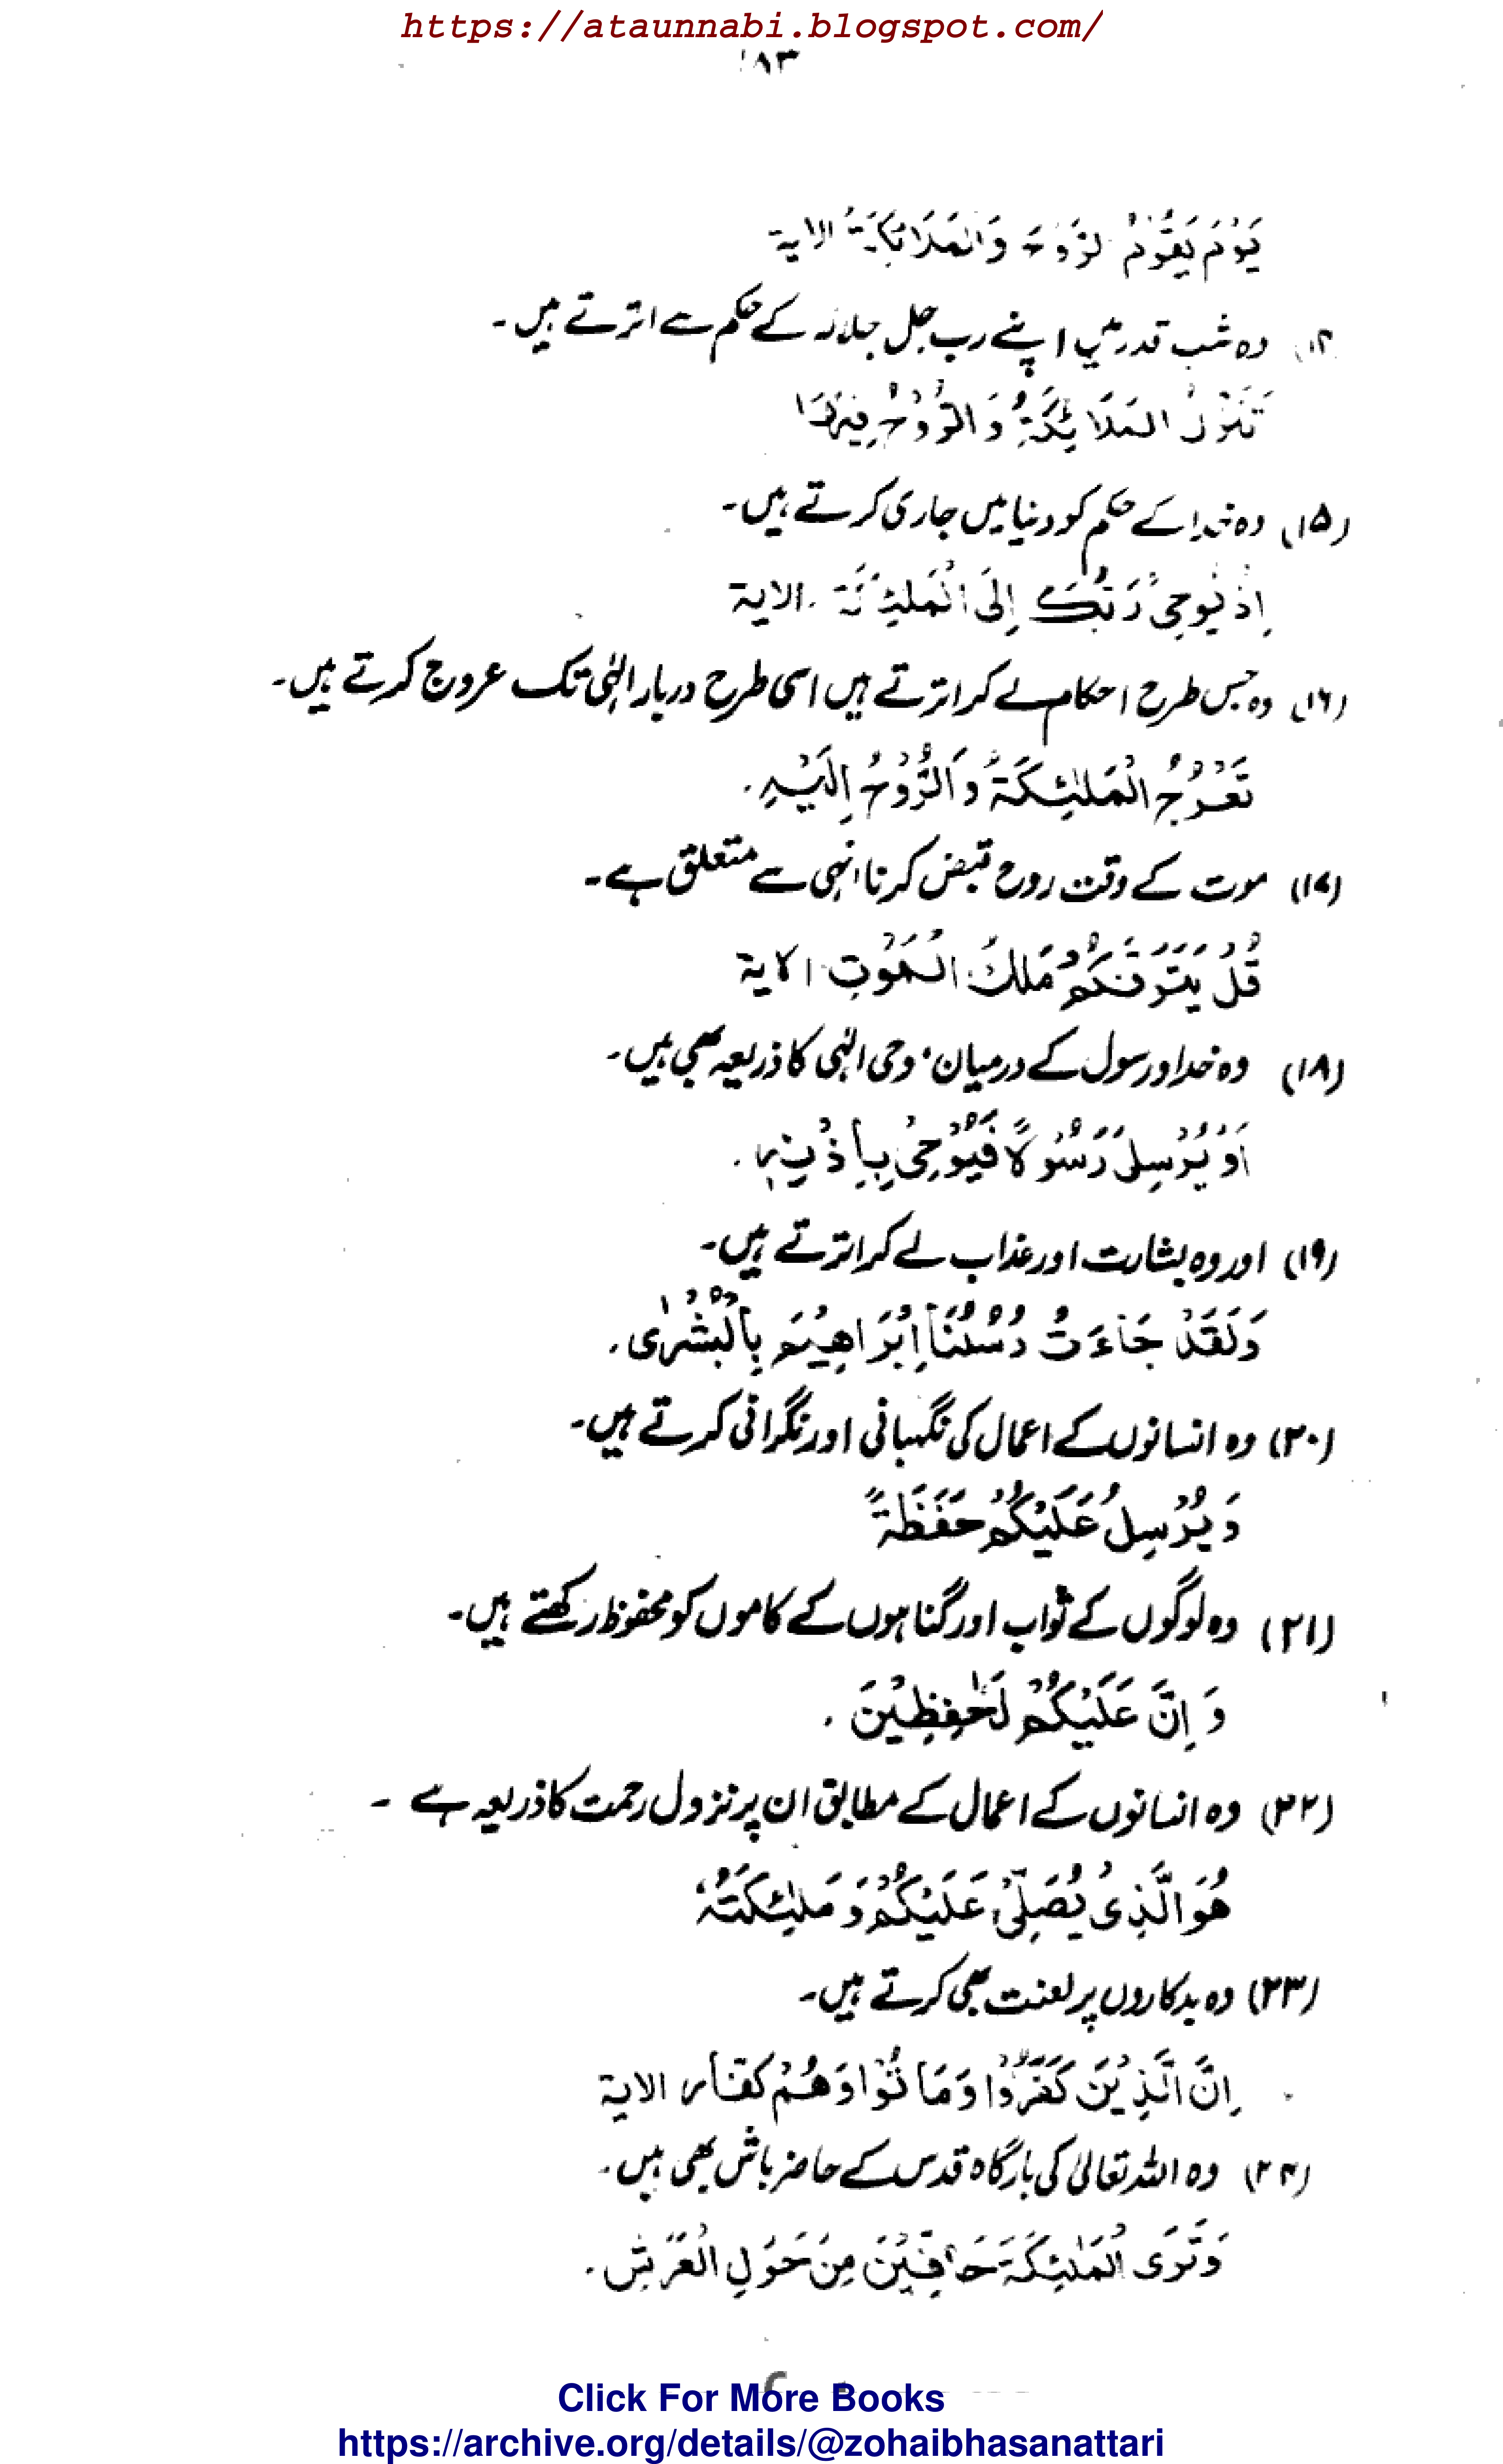 https://ataunnabi.blogspot.com/
۱۸۳
يَوْمَ يَقُوْمُ الرُّوْحُ وَالْمَلَائِكَةُ الاية
وہ شب قدر میں اپنے رب جل جلالہ کے حکم سے اترتے ہیں۔
تَنَزَّلُ الْمَلَائِكَةُ وَالرُّوْحُ فِيْهَا
(۱۵) وہ خدا کے حکم کو دنیا میں جاری کرتے ہیں۔
اِذْ يُوحِىْ رَبُّكَ اِلَى الْمَلٰئِكَةِ ۔ الاية
(۱۶) وہ جس طرح احکام لے کر اترتے ہیں اسی طرح دربار الٰہی تک عروج کرتے ہیں۔
تَعْرُجُ الْمَلٰئِكَةُ وَالرُّوْحُ اِلَيْهِ ۔
(۱۷) موت کے وقت روح قبض کرنا انہی سے متعلق ہے۔
قُلْ يَتَوَفّٰكُمْ مَلَكُ الْمَوْتِ الاية
(۱۸) وہ خدا و رسول کے درمیان، وحی الٰہی کا ذریعہ بھی ہیں۔
اَوْ يُرْسِلَ رَسُوْلًا فَيُوْحِىَ بِاِذْنِهٖ ۔
(۱۹) اور وہ بشارت اور عذاب لے کر اترتے ہیں۔
وَلَقَدْ جَاءَتْ رُسُلُنَا اِبْرَاهِيْمَ بِالْبُشْرٰى ۔
(۲۰) وہ انسانوں کے اعمال کی نگہبانی اور نگرانی کرتے ہیں۔
وَيُرْسِلُ عَلَيْكُمْ حَفَظَةً
(۲۱) وہ لوگوں کے ثواب اور گناہوں کے کاموں کو محفوظ رکھتے ہیں۔
وَاِنَّ عَلَيْكُمْ لَحٰفِظِيْنَ ۔
(۲۲) وہ انسانوں کے اعمال کے مطابق ان پر نزول رحمت کا ذریعہ ہے ۔
هُوَ الَّذِىْ يُصَلِّىْ عَلَيْكُمْ وَمَلٰئِكَتُهٗ
(۲۳) وہ بدکاروں پر لعنت بھی کرتے ہیں۔
اِنَّ الَّذِيْنَ كَفَرُوْا وَمَاتُوْا وَهُمْ كُفَّار الاية
(۲۴) وہ اللہ تعالیٰ کی بارگاہ قدس کے حاضر باش بھی ہیں۔
وَتَرَى الْمَلٰئِكَةَ حَافِّيْنَ مِنْ حَوْلِ الْعَرْشِ ۔
Click For More Books
https://archive.org/details/@zohaibhasanattari